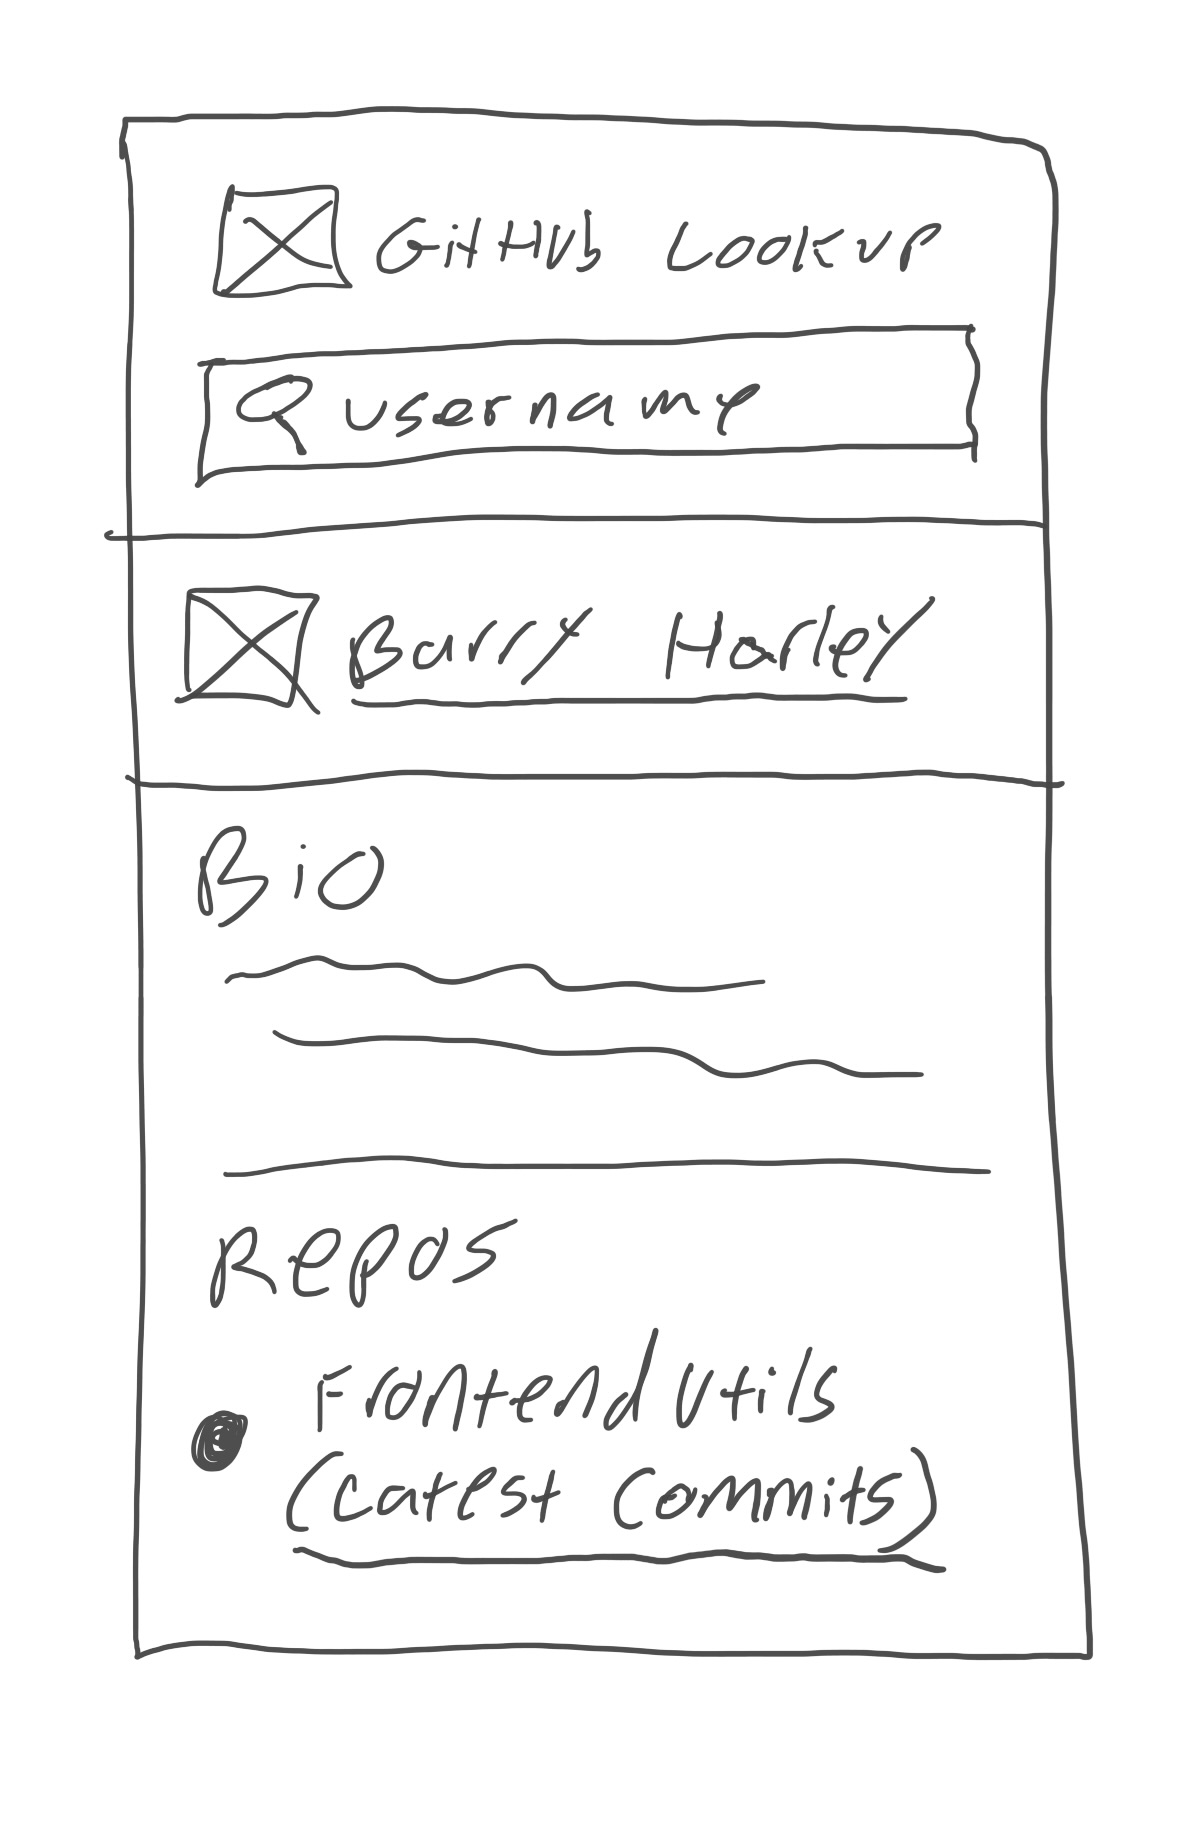 GitHub Lookup
username
Barry Harley
Bio
Repos
Frontend Utils
(Latest Commits)